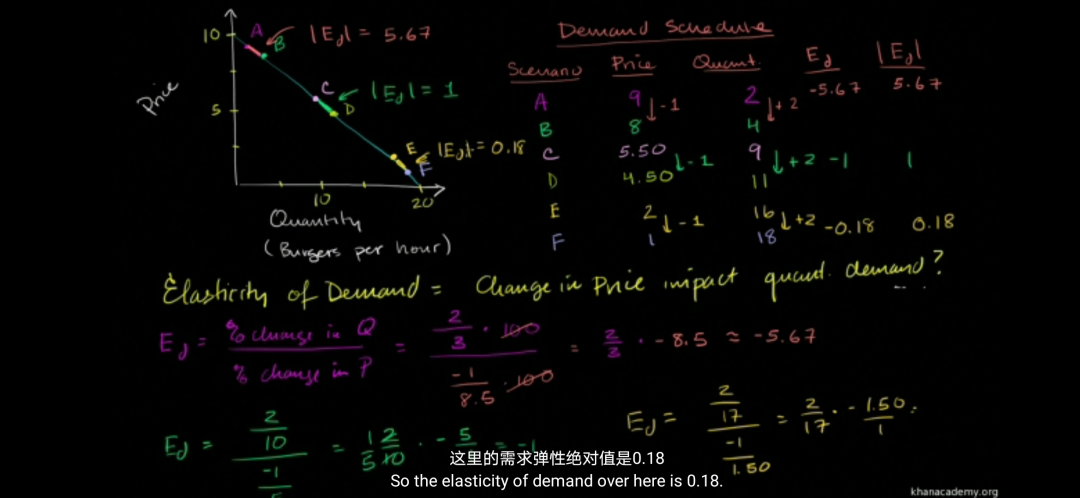 10
A
B
|Ed| = 5.67
Price
C
D
|Ed| = 1
5
E
F
|Ed| = 0.18
10
20
Quantity
(Burgers per hour)
Demand Schedule
Scenario Price Quant. Ed |Ed|
A 9 ↓-1 2 ↓+2 -5.67 5.67
B 8 4
C 5.50 ↓-1 9 ↓+2 -1 1
D 4.50 11
E 2 ↓-1 16 ↓+2 -0.18 0.18
F 1 18
Elasticity of Demand = Change in Price impact quant. demand?
Ed = % change in Q / % change in P = 2/3 · 100 / -1/8.5 · 100 = 2/3 · -8.5 ≈ -5.67
Ed = 2/10 / -1/5 = 2/10 · -5/ = -1
Ed = 2/17 / -1/1.50 = 2/17 · -1.50/1
这里的需求弹性绝对值是0.18
So the elasticity of demand over here is 0.18.
khanacademy.org